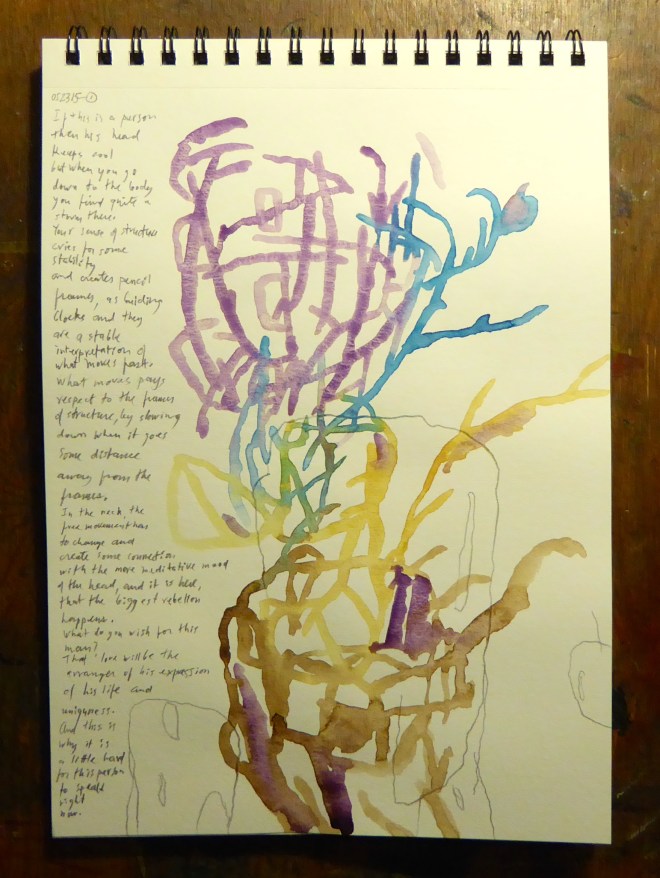 052315-①
If this is a person
then his head
keeps cool
but when you go
down to the body
you find quite a
storm there.
Your sense of structure
cries for some
stability
and creates pencil
frames, as building
blocks and they
are a stable
interpretation of
what moves past.
What moves pays
respect to the frames
of structure, by slowing
down when it goes
some distance
away from the
frames.
In the neck, the
free movement has
to change and
create some connection
with the more meditative mood
of the head, and it is here,
that the biggest rebellion
happens.
What do you wish for this
man?
That love will be the
arranger of his expression
of his life and
uniqueness.
And this is
why it is
a little hard
for this person
to speak
right
now.